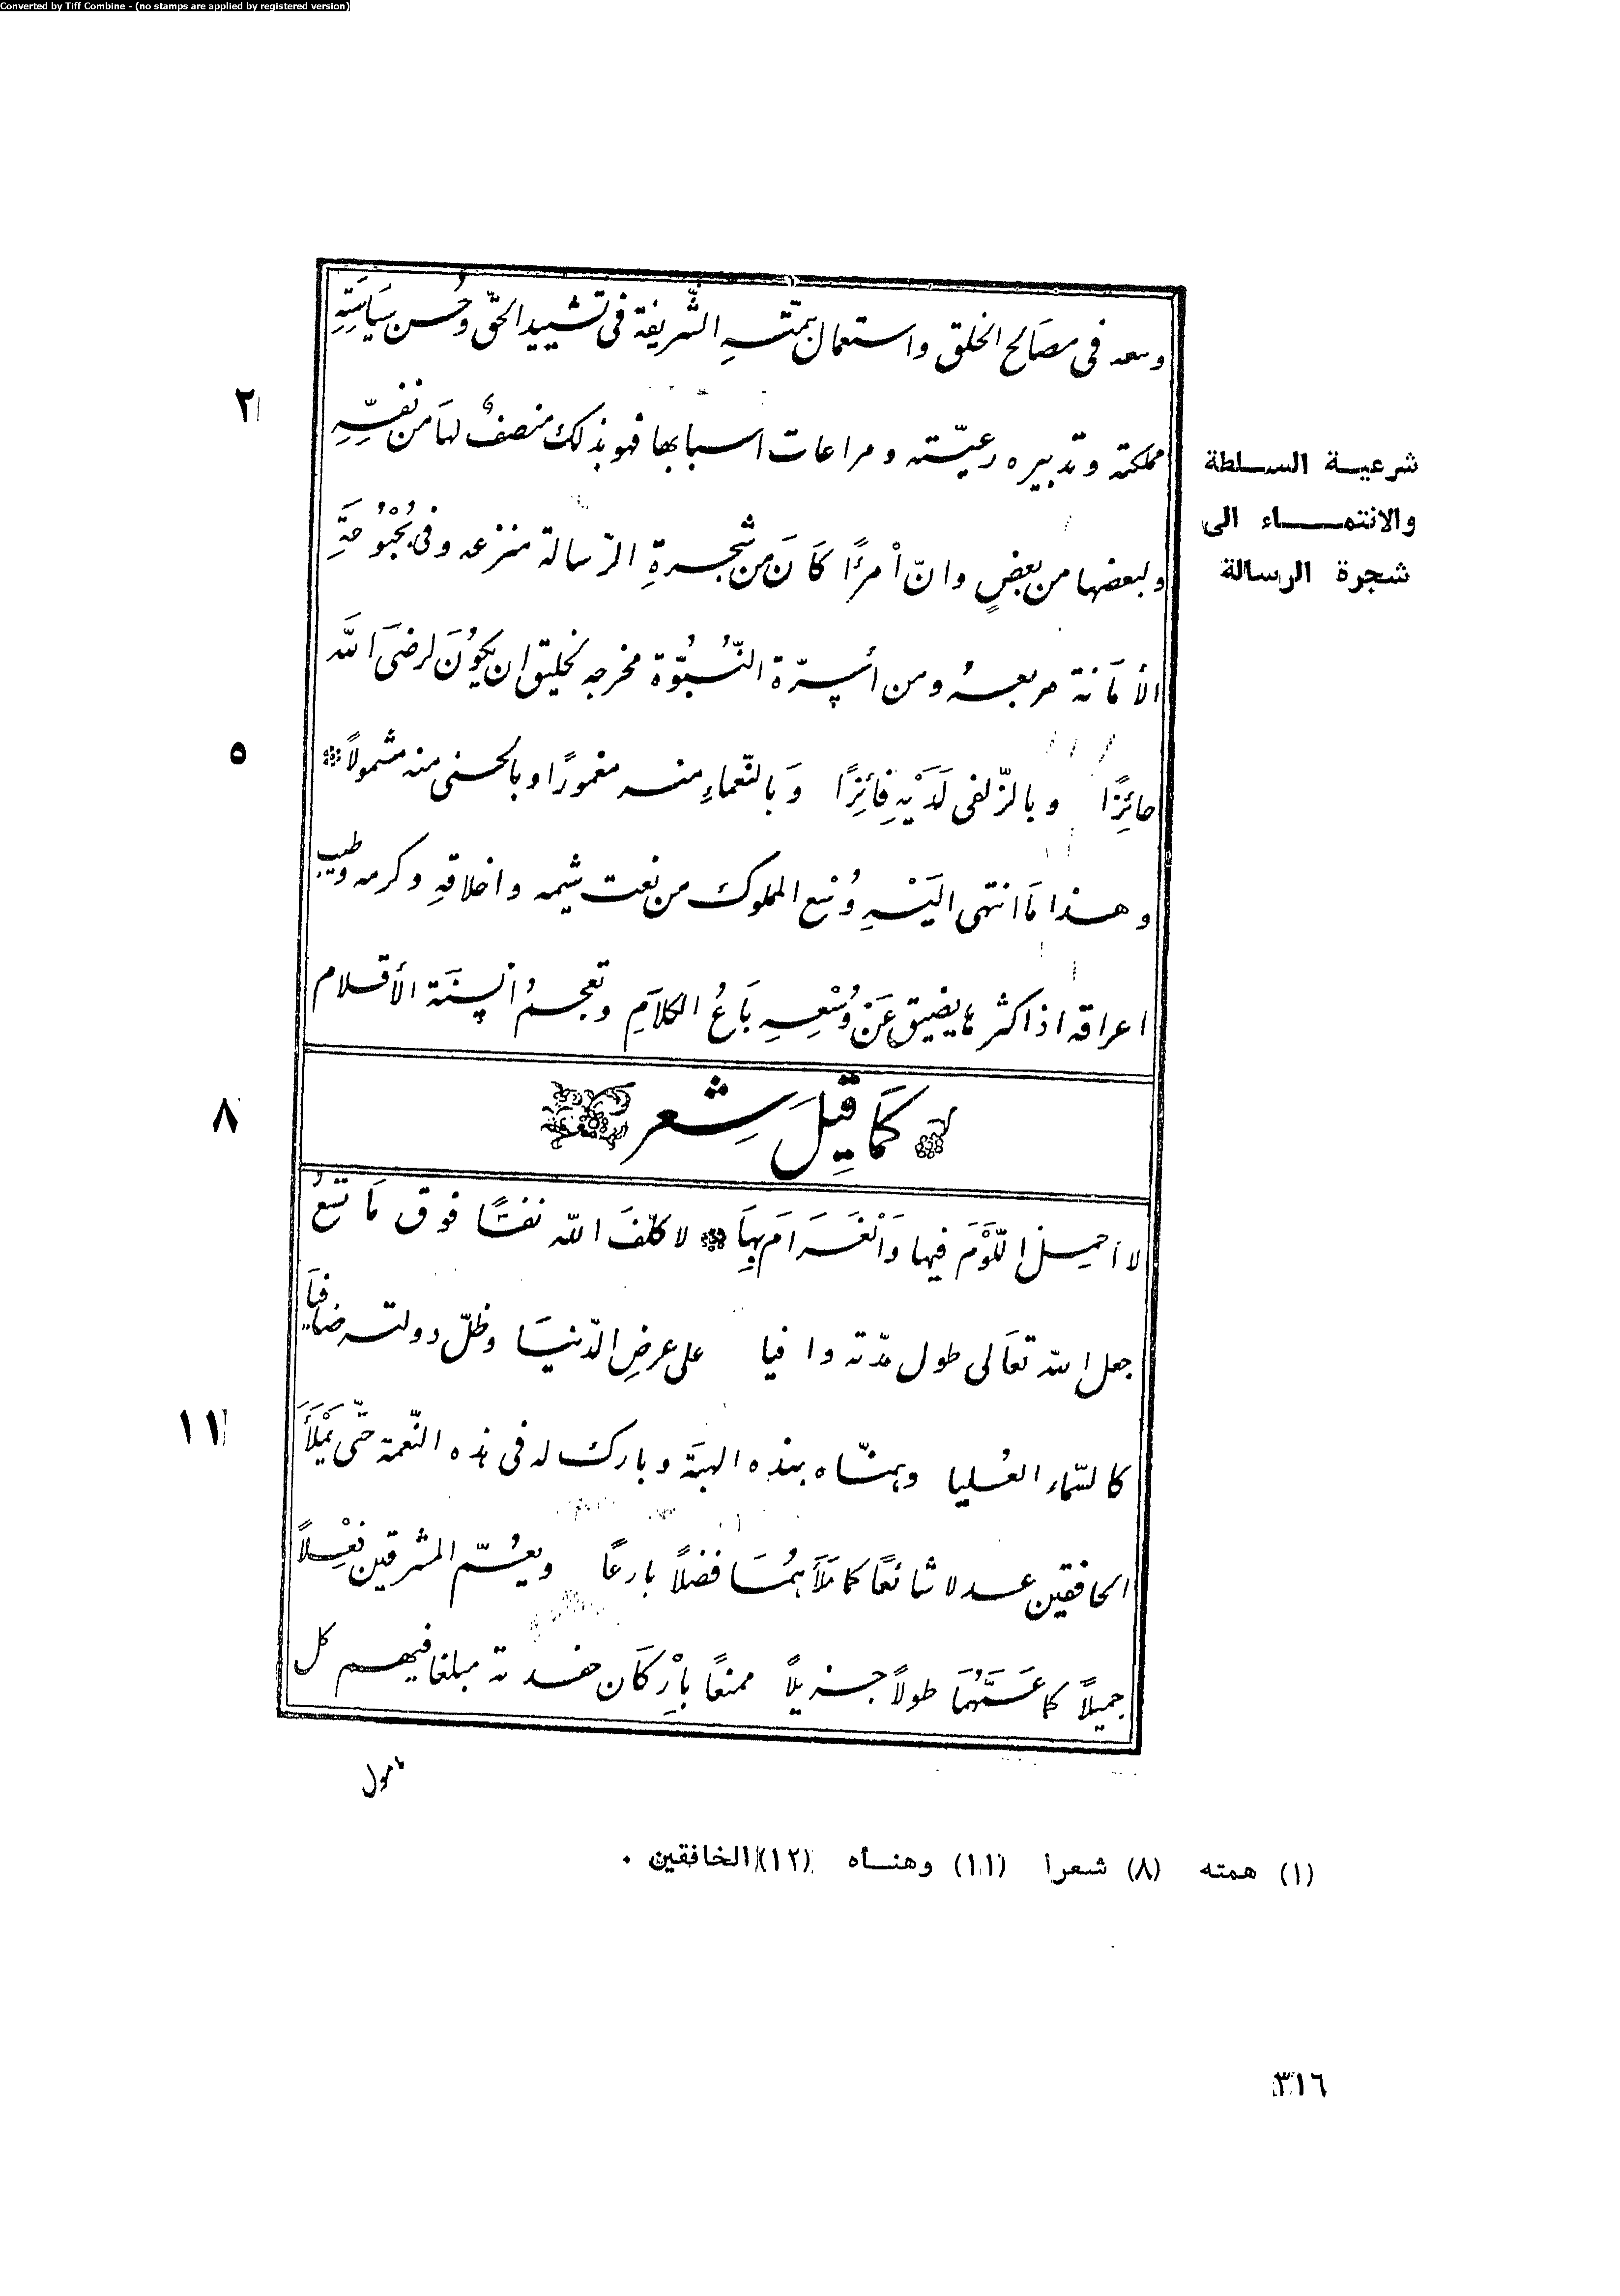 Converted by Tiff Combine - (no stamps are applied by registered version)
وسعه فى مصَالح الخلق واستعمال بهمّتهِ الشّريفة فى تشييد الحقّ وحُسن سيَاسَتِهِ
٢
مملكته وتدبيره رعيّته ومراعات اسبابها فهو بذلك منصفٌ لهَا من نفسِهِ
شرعية السلطة
والانتماء الى
شجرة الرسالة
ولبعضها من بعضٍ وانّ أمْرًا كَانَ من شجرةِ الرّسالة منزعه وفى بُحْبُوحَةِ
الأمَانة مربعهُ ومن أسِرّة النُّبُوّة مخرجه لخليق ان يكوُنَ لرضىَ الله
٥
حائِزًا وبالزّلفى لَدَيْهِ فائِزًا وَبالنّعماءِ منه مغمورًا وبالحسنى منه مشمولاً
وهذا مَا انتهى اليَهِ وُسْع المملوك من نعت شيمه واخلاقهِ وكرمه وطيب
اعراقه اذ اكثرها يضيق عَنْ وُسْعِهِ بَاعُ الكلاَمِ وتعجمُ ألسِنَة الأقلام
٨
كَمَا قِيلَ شِعر
لا أحمِلُ اللّوْمَ فيها وَالْغَرَامَ بِهَا لا كلّفَ الله نفسًا فوق مَا تسَعُ
جعل الله تعَالى طول مدّته وافيا على عرضِ الدّنيَا وظلّ دولته ضافيَا
١١
كالسّماء العُليا وهنّاه بهذه الهبَة وبارك له فى هذه النّعمة حتّى يَمْلَأَ
الحافقين عدلا شائعًا كما مَلَأهُمَا فضلاً بارعًا ويعُمّ المشرقين فعْلاً
جميلاً كما عَمَّهُمَا طولاً جزيلاً ممتعًا بأرْكَان مبلغا فيهم كل
مامول
(١) همته (٨) شعرا (١١) وهنأه (١٢) الخافقين .
٣١٦